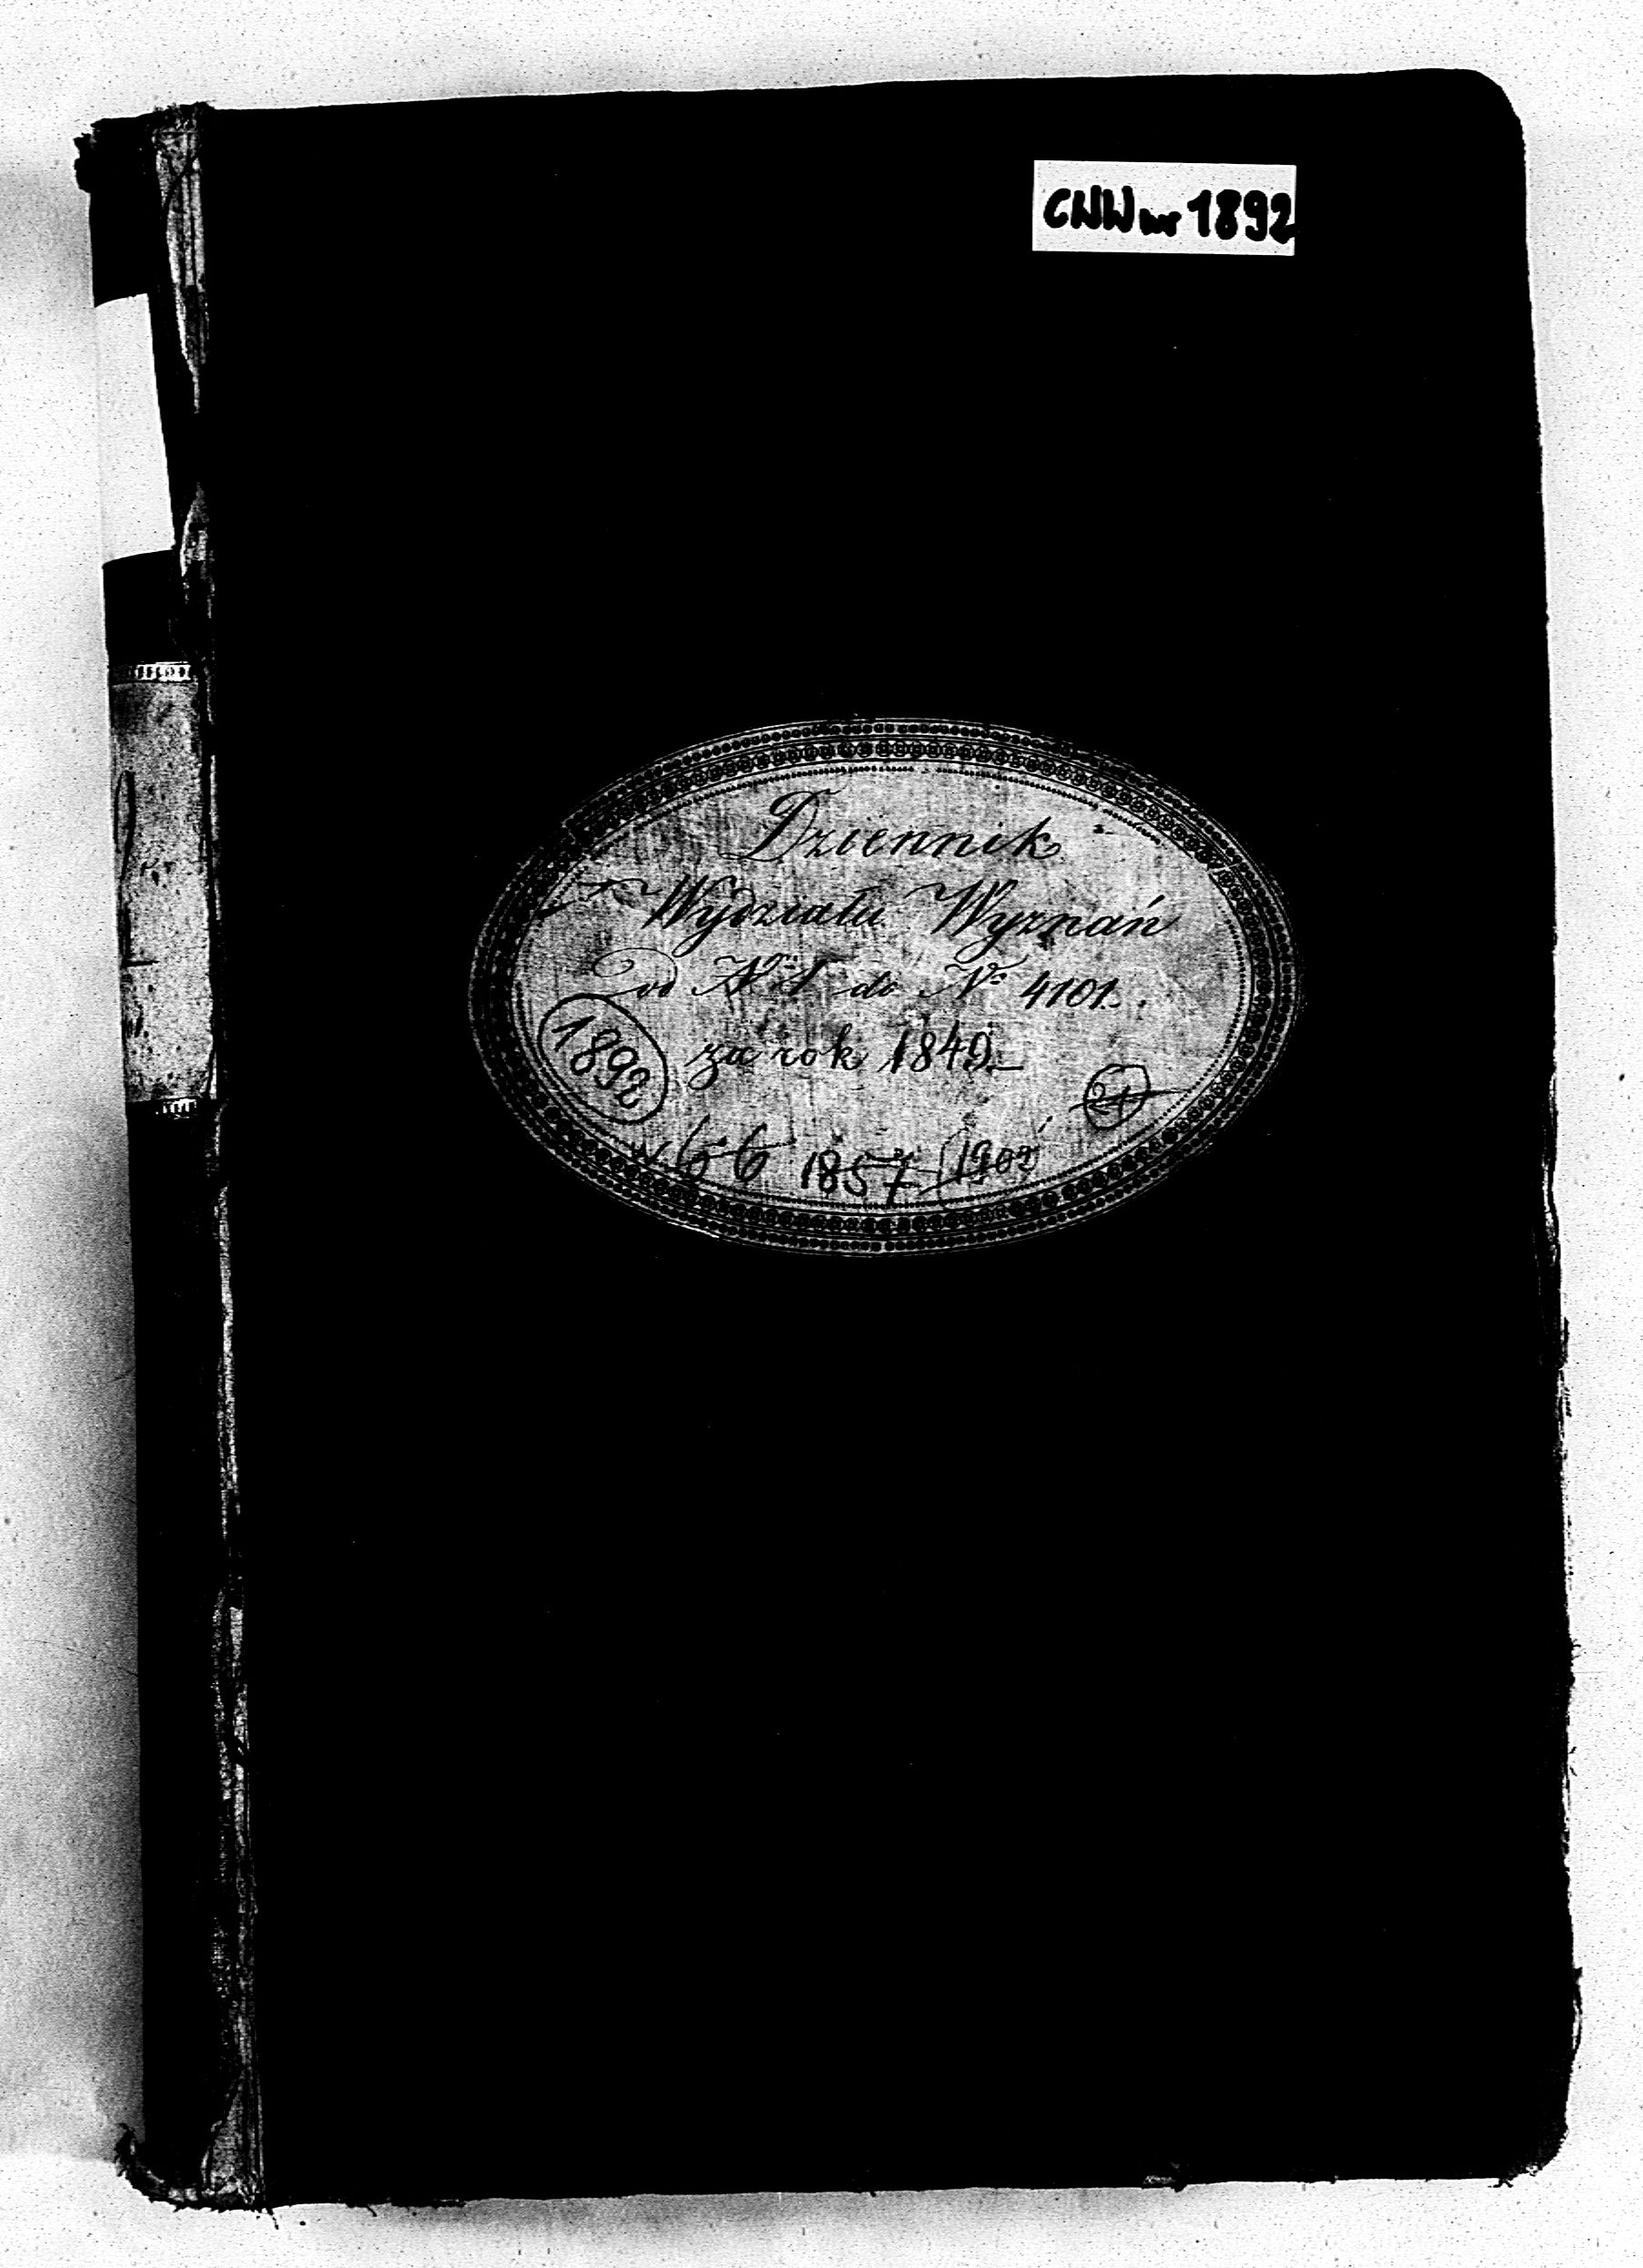 CWW nr 1892
Dziennik
Wydziału Wyznań
Od Nº 1 do Nº 4101.
za rok 1849
1892
21
66 1857